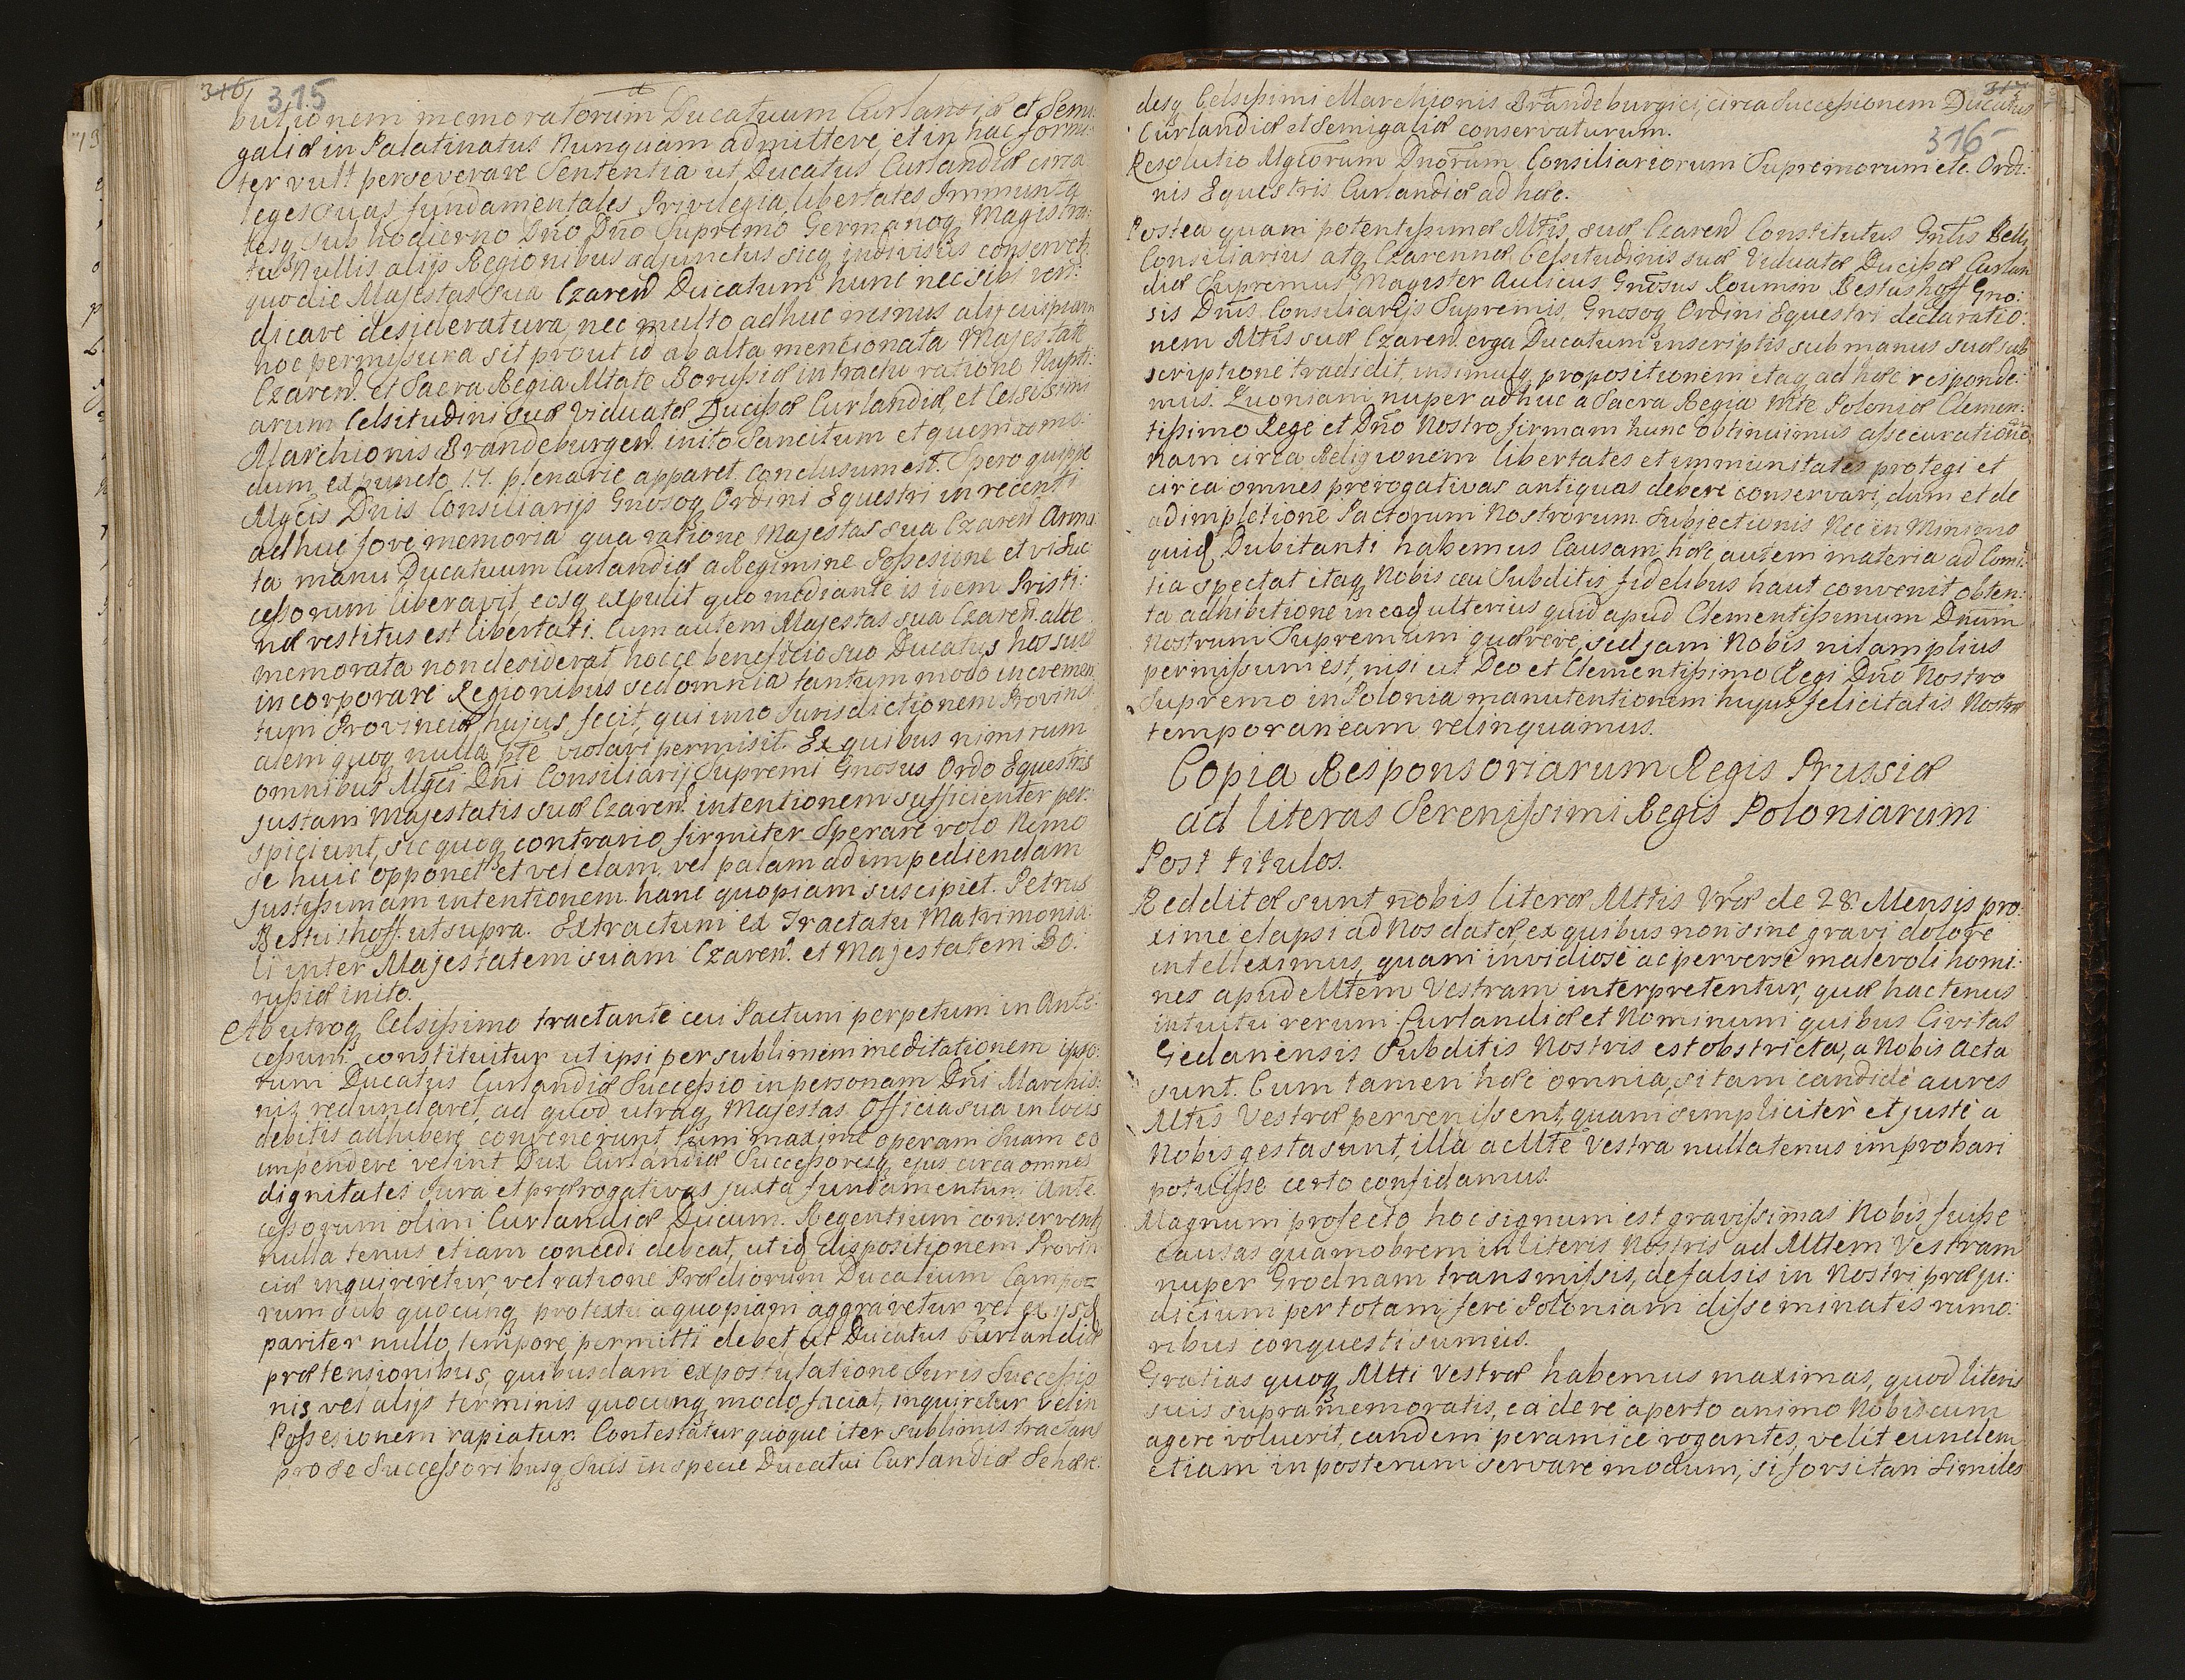 316
315
butionem memoratorum Ducatuum Curlandiæ et Semi:
galiæ in Palatinatus Nunquam admittere, et in hac formi:
ter vult perseverare Sententia ut Ducatus Curlandiæ circa
leges suas fundamentales Privilegia libertates Immunita
tesq sub hodierno Dno Dno Supremo Germanoq Magistra:
tu Nullis alijs Regionibus adjunctus sicq indivisus conservet
quo die Majestas Sua Czaren Ducatum hunc nec sibi ven:
dicare desideratura, nec multo adhuc minus alij cuipiam
hoc permissura sit prout id ab alta mencionata Majestate
Czaren. et Sacra Regia Mtate Borussiæ in tractu ratione Nupti:
arum Celsitudinis Suæ Viduatæ Ducissæ Curlandiæ, et Celsissimi
Marchionis Brandeburgen. inito Sancitum et quemadmo:
dum ex puncto 14. plenarie apparet conclusum est. Spero quippe
Mgcis Dnis Consiliarijs Gnosoq Ordini Equestri in recenti
adhuc fore memoria qua ratione Majestas sua Czaren Arma
ta manu Ducatuum Curlandiæ a Regimine Possesione et vi Suc
cessorum liberavit, eosq expulit quo mediante is idem Pristi:
næ restitus est libertati. Cum autem Majestas sua Czaren. alte
memorata non desiderat hocce beneficio suo Ducatus hos suis
incorporare Regionibus sed omnia tantum modo in cremen
tum Provinciæ hujus fecit, qui imo Jurisdictionem Provinci
alem quoq nulla pte violari permisit. Ex quibus nimirum
omnibus Mgci Dni Consiliarij Supremi Gnosus Ordo Equestris
justam Majestatis suæ Czaren. intentionem sufficienter per:
spiciunt, sic quoq contrario firmiter Sperare volo Nemo
se huic opponet et vel clam, vel palam ad impediendam
justissimam intentionem hanc quopiam suscipiet. Petrus
Bestushoff. ut supra. Extractum ex Tractatu Matrimonia:
li inter Majestatem suam Czaren. et Majestatem Bo:
russiæ inito.
Ab utroq Celsissimo tractante ceu Pactum perpetum in Ante:
cessum constituitur ut ipsi per sublimem meditationem ipso:
rum Ducatus Curlandiæ Successio in personam Dni Marchio:
nis redundaret, ad quod utraq Majestas Officia sua in locis
debitis adhibere convenerunt tum maxime operam Suam eo
impendere velint Dux Curlandiæ Successoresq ejus circa omnes
dignitates Jura et prærogativas juxta fundamentum Ante
cessorum olim Curlandiæ Ducum. Regentium conservent,
nulla tenus etiam concedi debeat, ut iq dispositionem Provin
ciæ inquireretur, vel ratione Prædiorum Ducalium Campo=
rum sub quocunq protextu a quopiam aggravetur vel ex
pariter nullo tempore permitti debet, ut Ducatus Curlandiæ
prætensionibus, quibusdam expostulatione Juris Successio
nis, vel alijs terminis quocunq modo faciat, inquiretur vel in
Possesionem rapiatur. Contestatur quoque iter sublimis tractans
pro se Successoribusq Suis in specie Ducatui Curlandiæ Se hære:
317
desq Celsissimi Marchionis Brandeburgici, circa Successionem Ducatus
Curlandiæ et Semigaliæ conservaturum.
316
Resolutio Mgcorum Dnorum Consiliariorum Supremorum etc. Ordi:
nis Equestris Curlandiæ ad hæc.
Postea quam potentissimæ Mttis suæ Czaren Constitutus Gnlis Belli
Consiliarius atq Czarennæ Celsitudinis suæ Viduatæ Ducissæ Curlan
diæ Supremus Magister Aulicus Gnosus Roumsn Bestushoff Gno:
sis Dnis Consiliarijs Supremis, Gnosoq Ordini Equestri declaratio:
nem Mttis suæ Czaren. erga Ducatum in scriptis sub manus suæ sub
scriptione tradidit, insimulq propositionem itaq ad hæc responde:
mus. Quoniam nuper adhuc a Sacra Regia Mtte Poloniæ Clemen:
tissimo Rege et Dno Nostro firmam hunc obtinuimus assecurationē
nam circa Religionem libertates et immunitates protegi et
circa omnes prerogativas antiquas debere conservari, dum et de
adimpletione Pactorum Nostrorum Subjectionis Nec in Minimo
quid Dubitanti habemus Causam, hæc autem materia ad Comi:
tia spectat itaq Nobis ceu Subditis fidelibus haut convenit obten:
ta adhibitione in eoq ulterius quid apud Clementissimum Dnum
Nostrum Supremum quærere, sed jam Nobis nil amplius
permissum est, nisi ut Deo et Clementissimo Regi Dno Nostro
Supremo in Polonia manutentionem hujus felicitatis Nostræ
temporaneam relinquamus.
Copia Responsoriarum Regis Prussiæ
ad literas Serenissimi Regis Poloniarum
Post titulos.
Redditæ sunt nobis literæ Mttis Vræ de 28. Mensis pro:
xime elapsi ad Nos datæ, ex quibus non sine gravi dolore
intelleximus, quam invidiose ac perverse malevoli homi:
nes apud Mttem Vestram interpretentur, quæ hactenus
intuitu rerum Curlandiæ et Nominum quibus Civitas
Gedanensis Subditis Nostris est obstricta, a Nobis acta
sunt. Cum tamen hæc omnia, si tam candide aures
Mttis Vestræ pervenissent, quam simpliciter et juste a
Nobis gesta sunt, illa a Mtte Vestra nullatenus improbari
potuisse certo confidamus.
Magnum profecto hoc signum est gravissimas Nobis fuisse
causas quamobrem in literis Nostris ad Mttem Vestram
nuper Grodnam transmissis, de falsis in Nostri præju:
dicium per totam fere Poloniam disseminatis rumo:
ribus conquesti sumus.
Gratias quoq Mtti Vestræ habemus maximas, quod literis
suis supra memoratis, ea de re aperto animo Nobiscum
agere voluerit, eandem peramice rogantes, velit eundem
etiam in posterum servare modum, si forsitan Similes